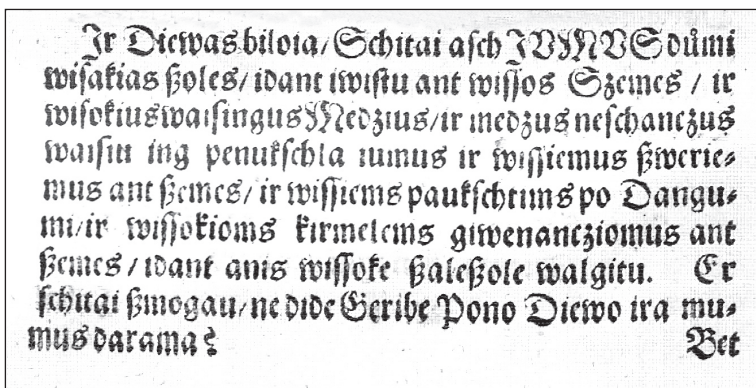 Ir Diewas biloia/ Schitai asch IVMVS důmi
wisakias ßoles/ idant iwistu ant wissos Szemes / ir
wisokius waisingus Medzius/ ir medzus neschanczus
waisiu ing penukschla iumus ir wissiemus ßwerie⸗
mus ant ßemes/ ir wissiems paukschtims po Dangu⸗
mi/ ir wissokioms kirmelems giwenancziomus ant
ßemes / idant anis wissoke ßaleßole walgitu. Er
schitai ßmogau/ ne dide Geribe Pono Diewo ira mu⸗
mus darama?
Bet